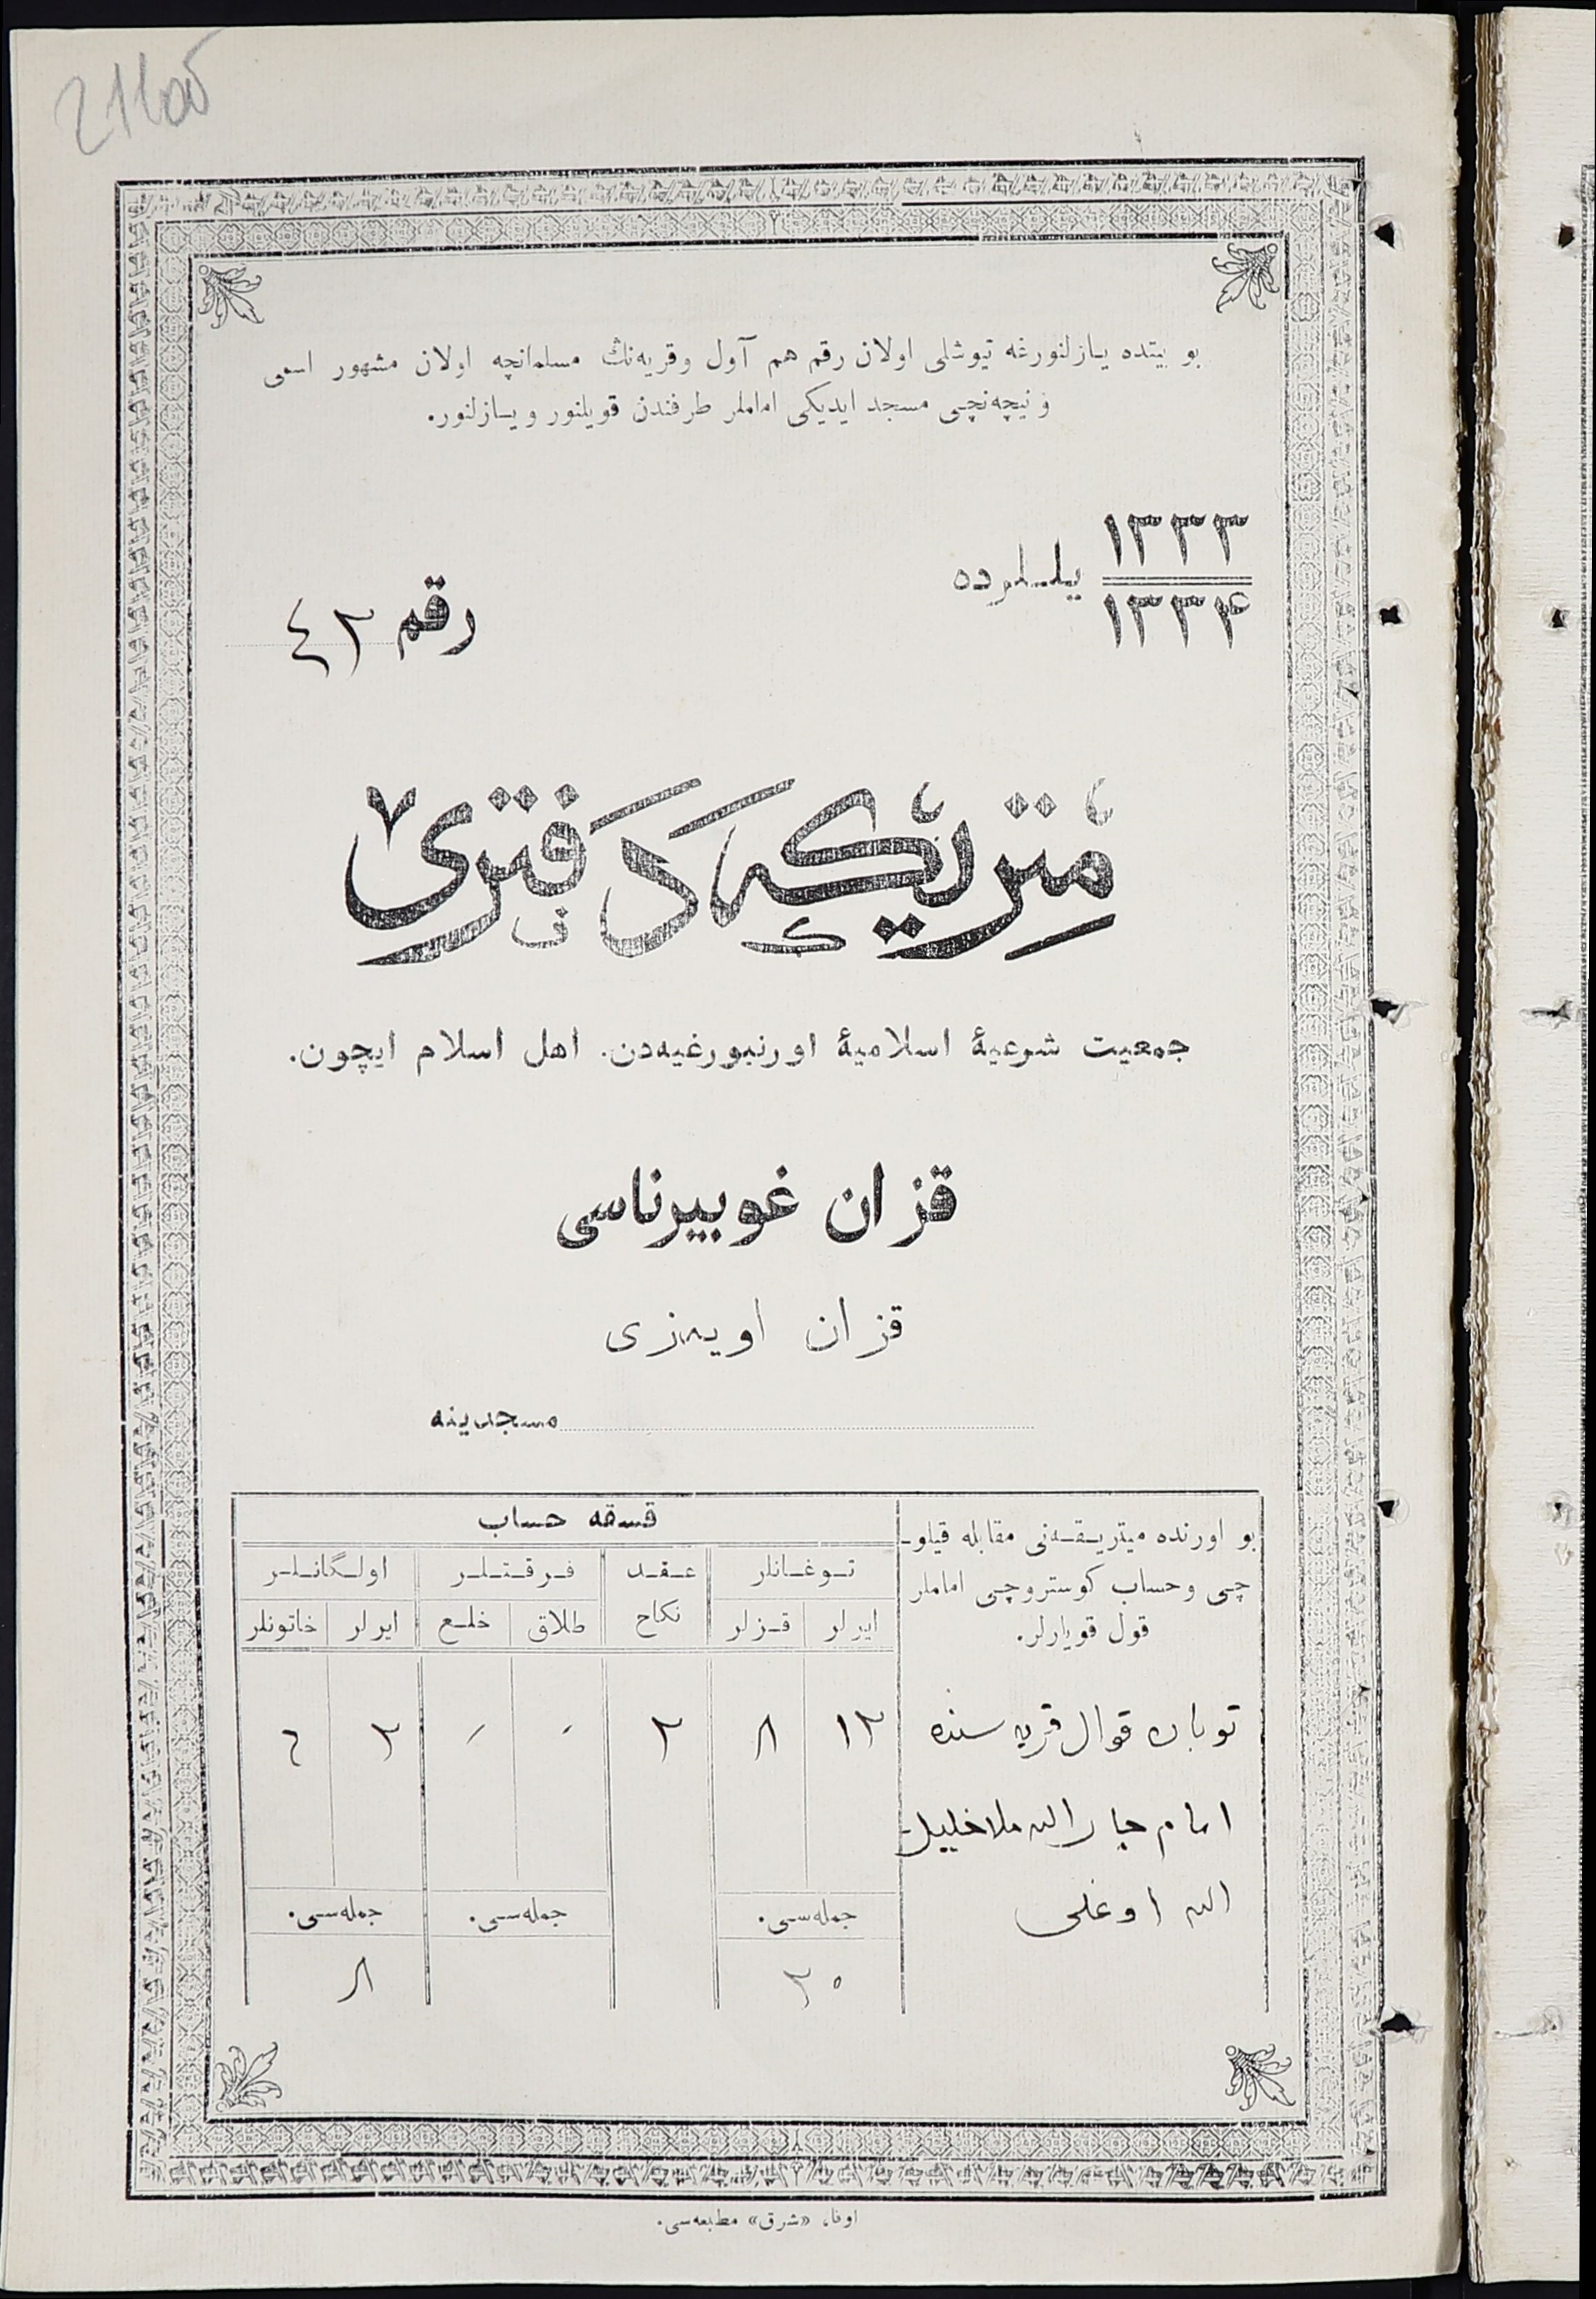 بو بيتده يازلنورغه تيوشلى اولان رقم هم آول وقريه‌نڭ مسلمانچه اولان مشهور اسمى
ونيچه‌نچى مسجد ايديكى اماملر طرفندن قويلنور ويازلنور.
١٣٣٣
١٣٣۴
يللرده
رقم ٤٢
مِتريكه دَفترى
جمعيت شرعيۀ اسلاميۀ اورنبورغيه‌دن. اهل اسلام ايچون.
قزان غوبيرناسى
قزان اويه‌زى
مسجدينه
بو اورنده ميتريقه‌نى مقابله قيلو-
چى وحساب كوستروچى اماملر
قول قويارلر.
قسقه حساب
توغانلر عقد فرقتلر اولگانلر
ايرلر قزلر نكاح طلاق خلع ايرلر خاتونلر
توبان قوال قريه سنده
١٢ ٨ ٢ ٢ ٦
امام جار الله ملا خليل
الله اوغلى
جمله‌سى. جمله‌سى. جمله‌سى.
٢٠ ٨
اوفا، «شرق» مطبعه‌سى.